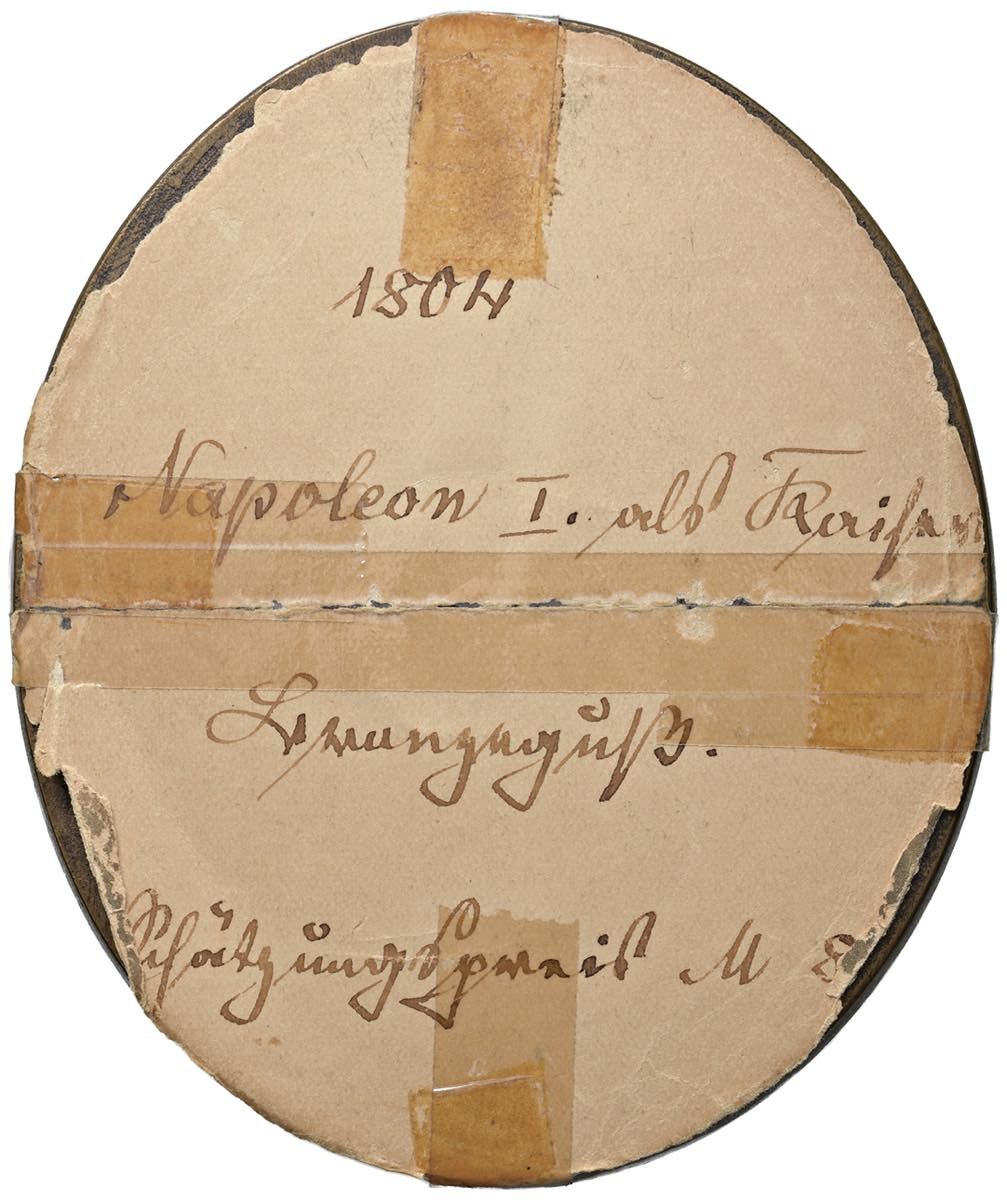 1804
Napoleon I. als Kaiser
Bronzeguß.
Schätzungspreis M 8